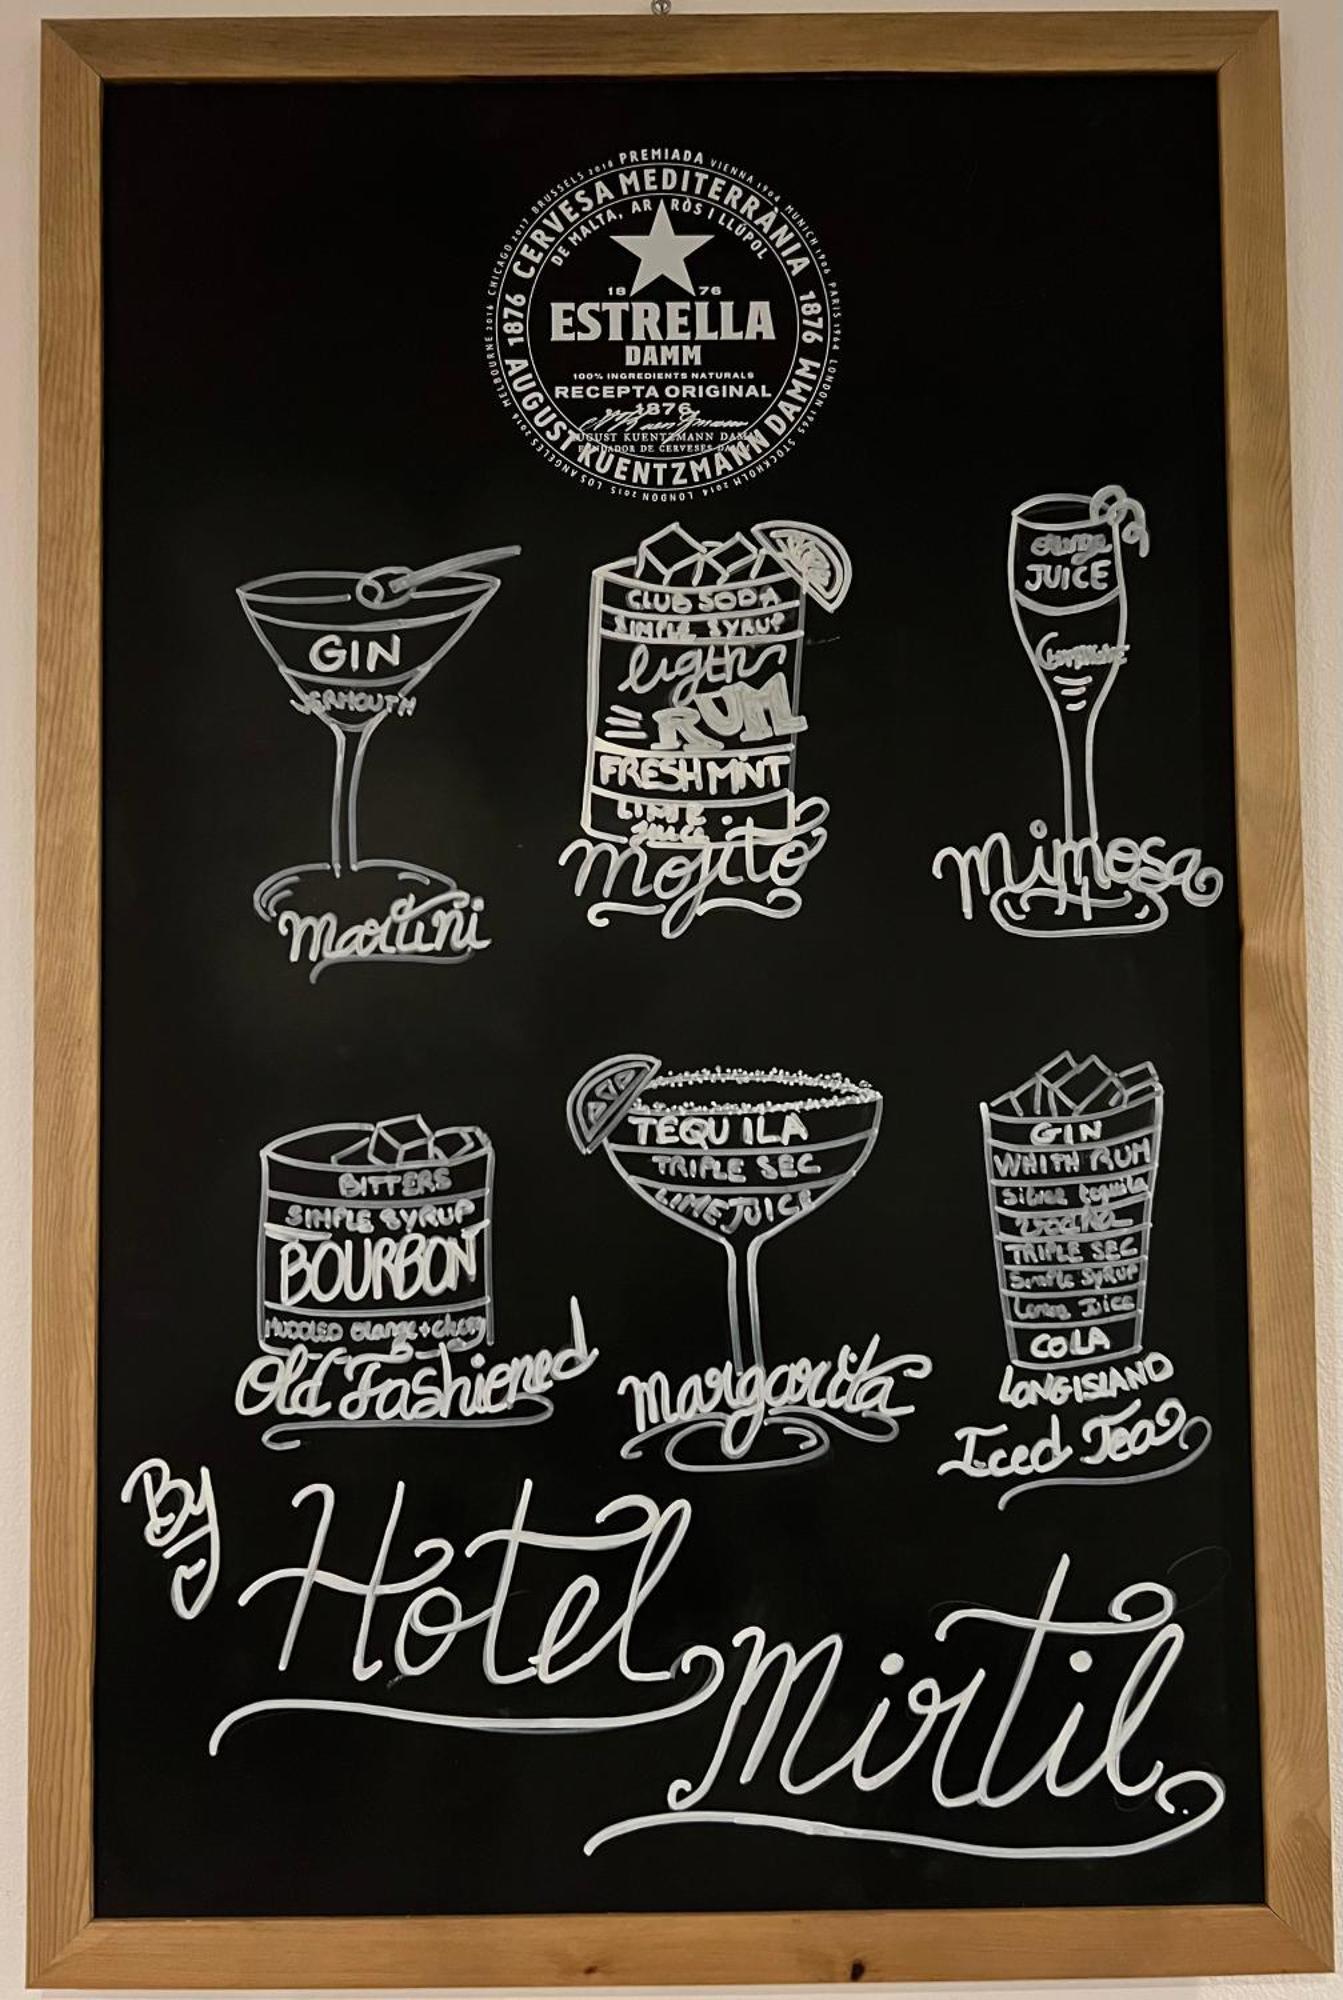 PREMIADA VIENNA 1904 MUNICH 1906 PARIS 1964 LONDON 1965 STOCKHOLM 2014 LONDON 2014 LONDON 2015 LOS ANGELES 2016 MELBOURNE 2016 CHICAGO 2017 BRUSSELS 2018
CERVESA MEDITERRÀNIA
DE MALTA, ARRÒS I LLÚPOL
1876 1876
18 76
ESTRELLA
DAMM
100% INGREDIENTS NATURALS
RECEPTA ORIGINAL
1876
AUGUST KUENTZMANN DAMM
FUNDADOR DE CERVESES DAMM
AUGUST KUENTZMANN DAMM
GIN
VERMOUTH
Martini
CLUB SODA
SIMPLE SYRUP
ligth
RUM
FRESH MINT
LIME
Juice
Mojito
orange
JUICE
Champagne
Mimosa
BITTERS
SIMPLE SYRUP
BOURBON
MUDDLED orange + cherry
Old Fashioned
TEQUILA
TRIPLE SEC
LIME JUICE
Margarita
GIN
WHITH RUM
Silver tequila
Vodka
TRIPLE SEC
Simple SYRUP
Lemon Juice
COLA
LONG ISLAND
Iced Tea
By
Hotel
Mirtil